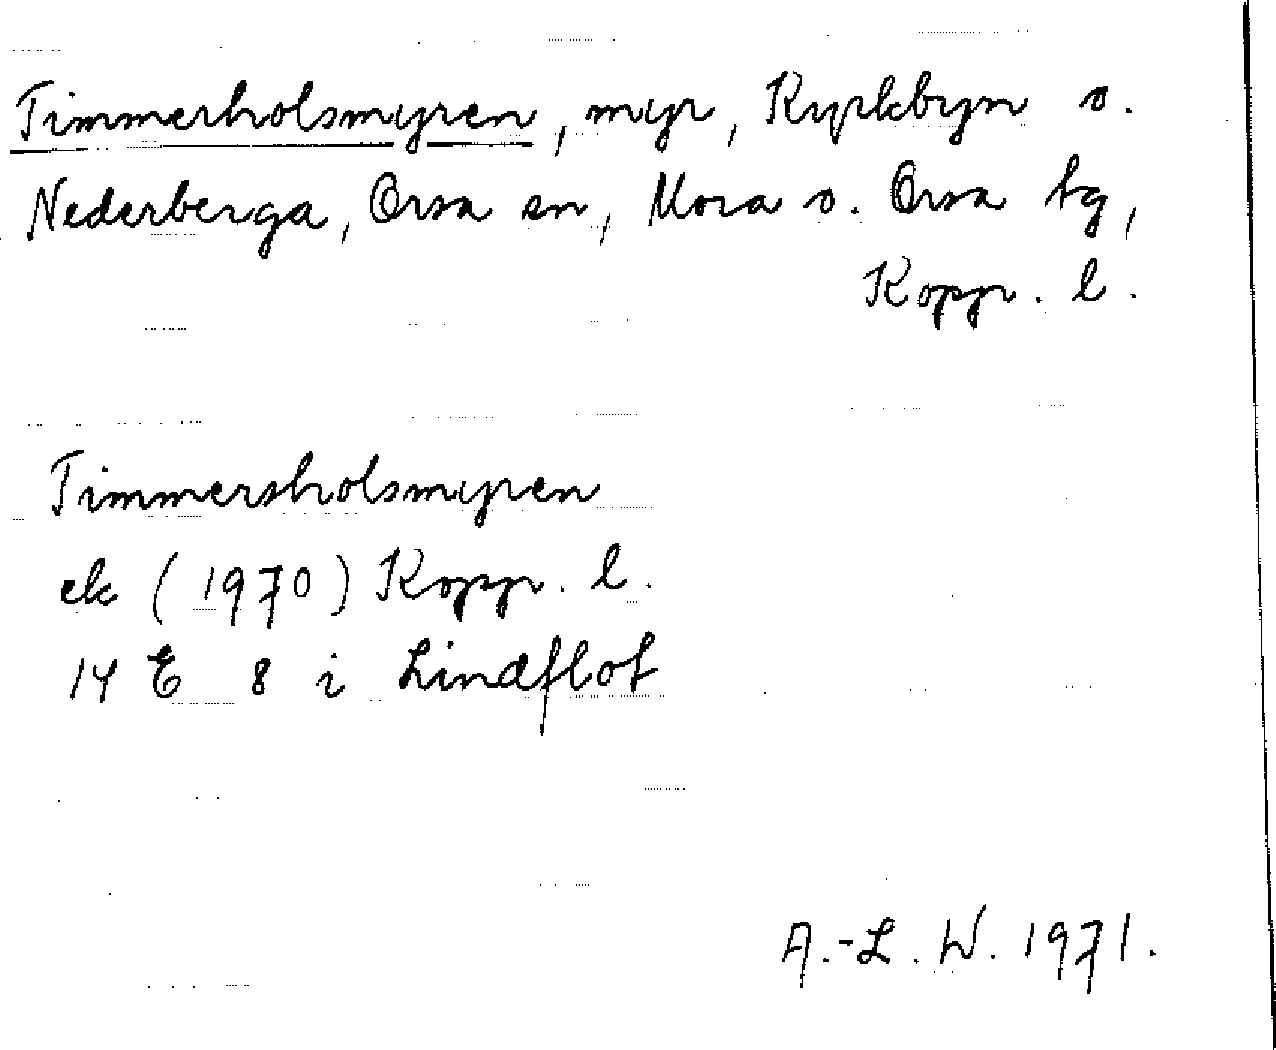 Timmerholsmyren, myr, Kyrkbyn o.
Nederberga, Orsa sn, Mora o. Orsa tg,
Koppr. l.
Timmersholsmyren
ek (1970) Koppr. l.
14 E 8 i Lindflot
A.-L. W. 1971.